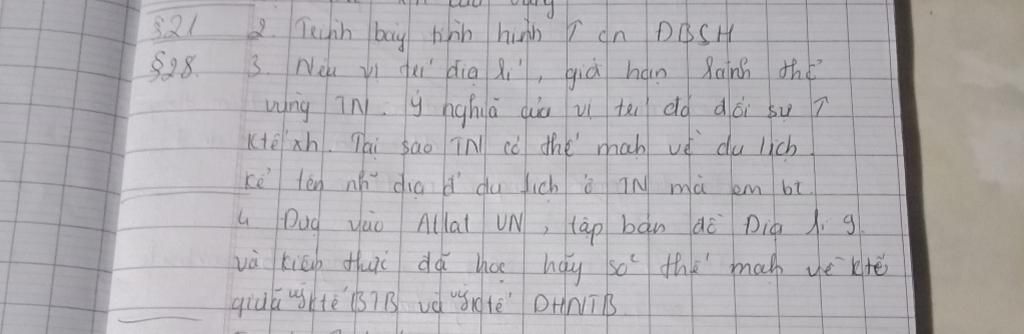 §21 2. Trình bày tình hình ↑ cn ĐBSH
§28. 3. Nêu vị trí địa lí, giới hạn lãnh thổ
vùng TN. Ý nghĩa của vị trí đó đối sự ↑
Ktế xh. Tại sao TN có thế mạh về du lịch
kể tên nh~ địa đ' du lịch ở TN mà em bt
4. Dựa vào Atlat VN, tập bản đồ Địa lí 9
và kiến thức đã học hãy so² thế mạh về ktế
giữa vg ktế BTB và vg ktế DHNTB